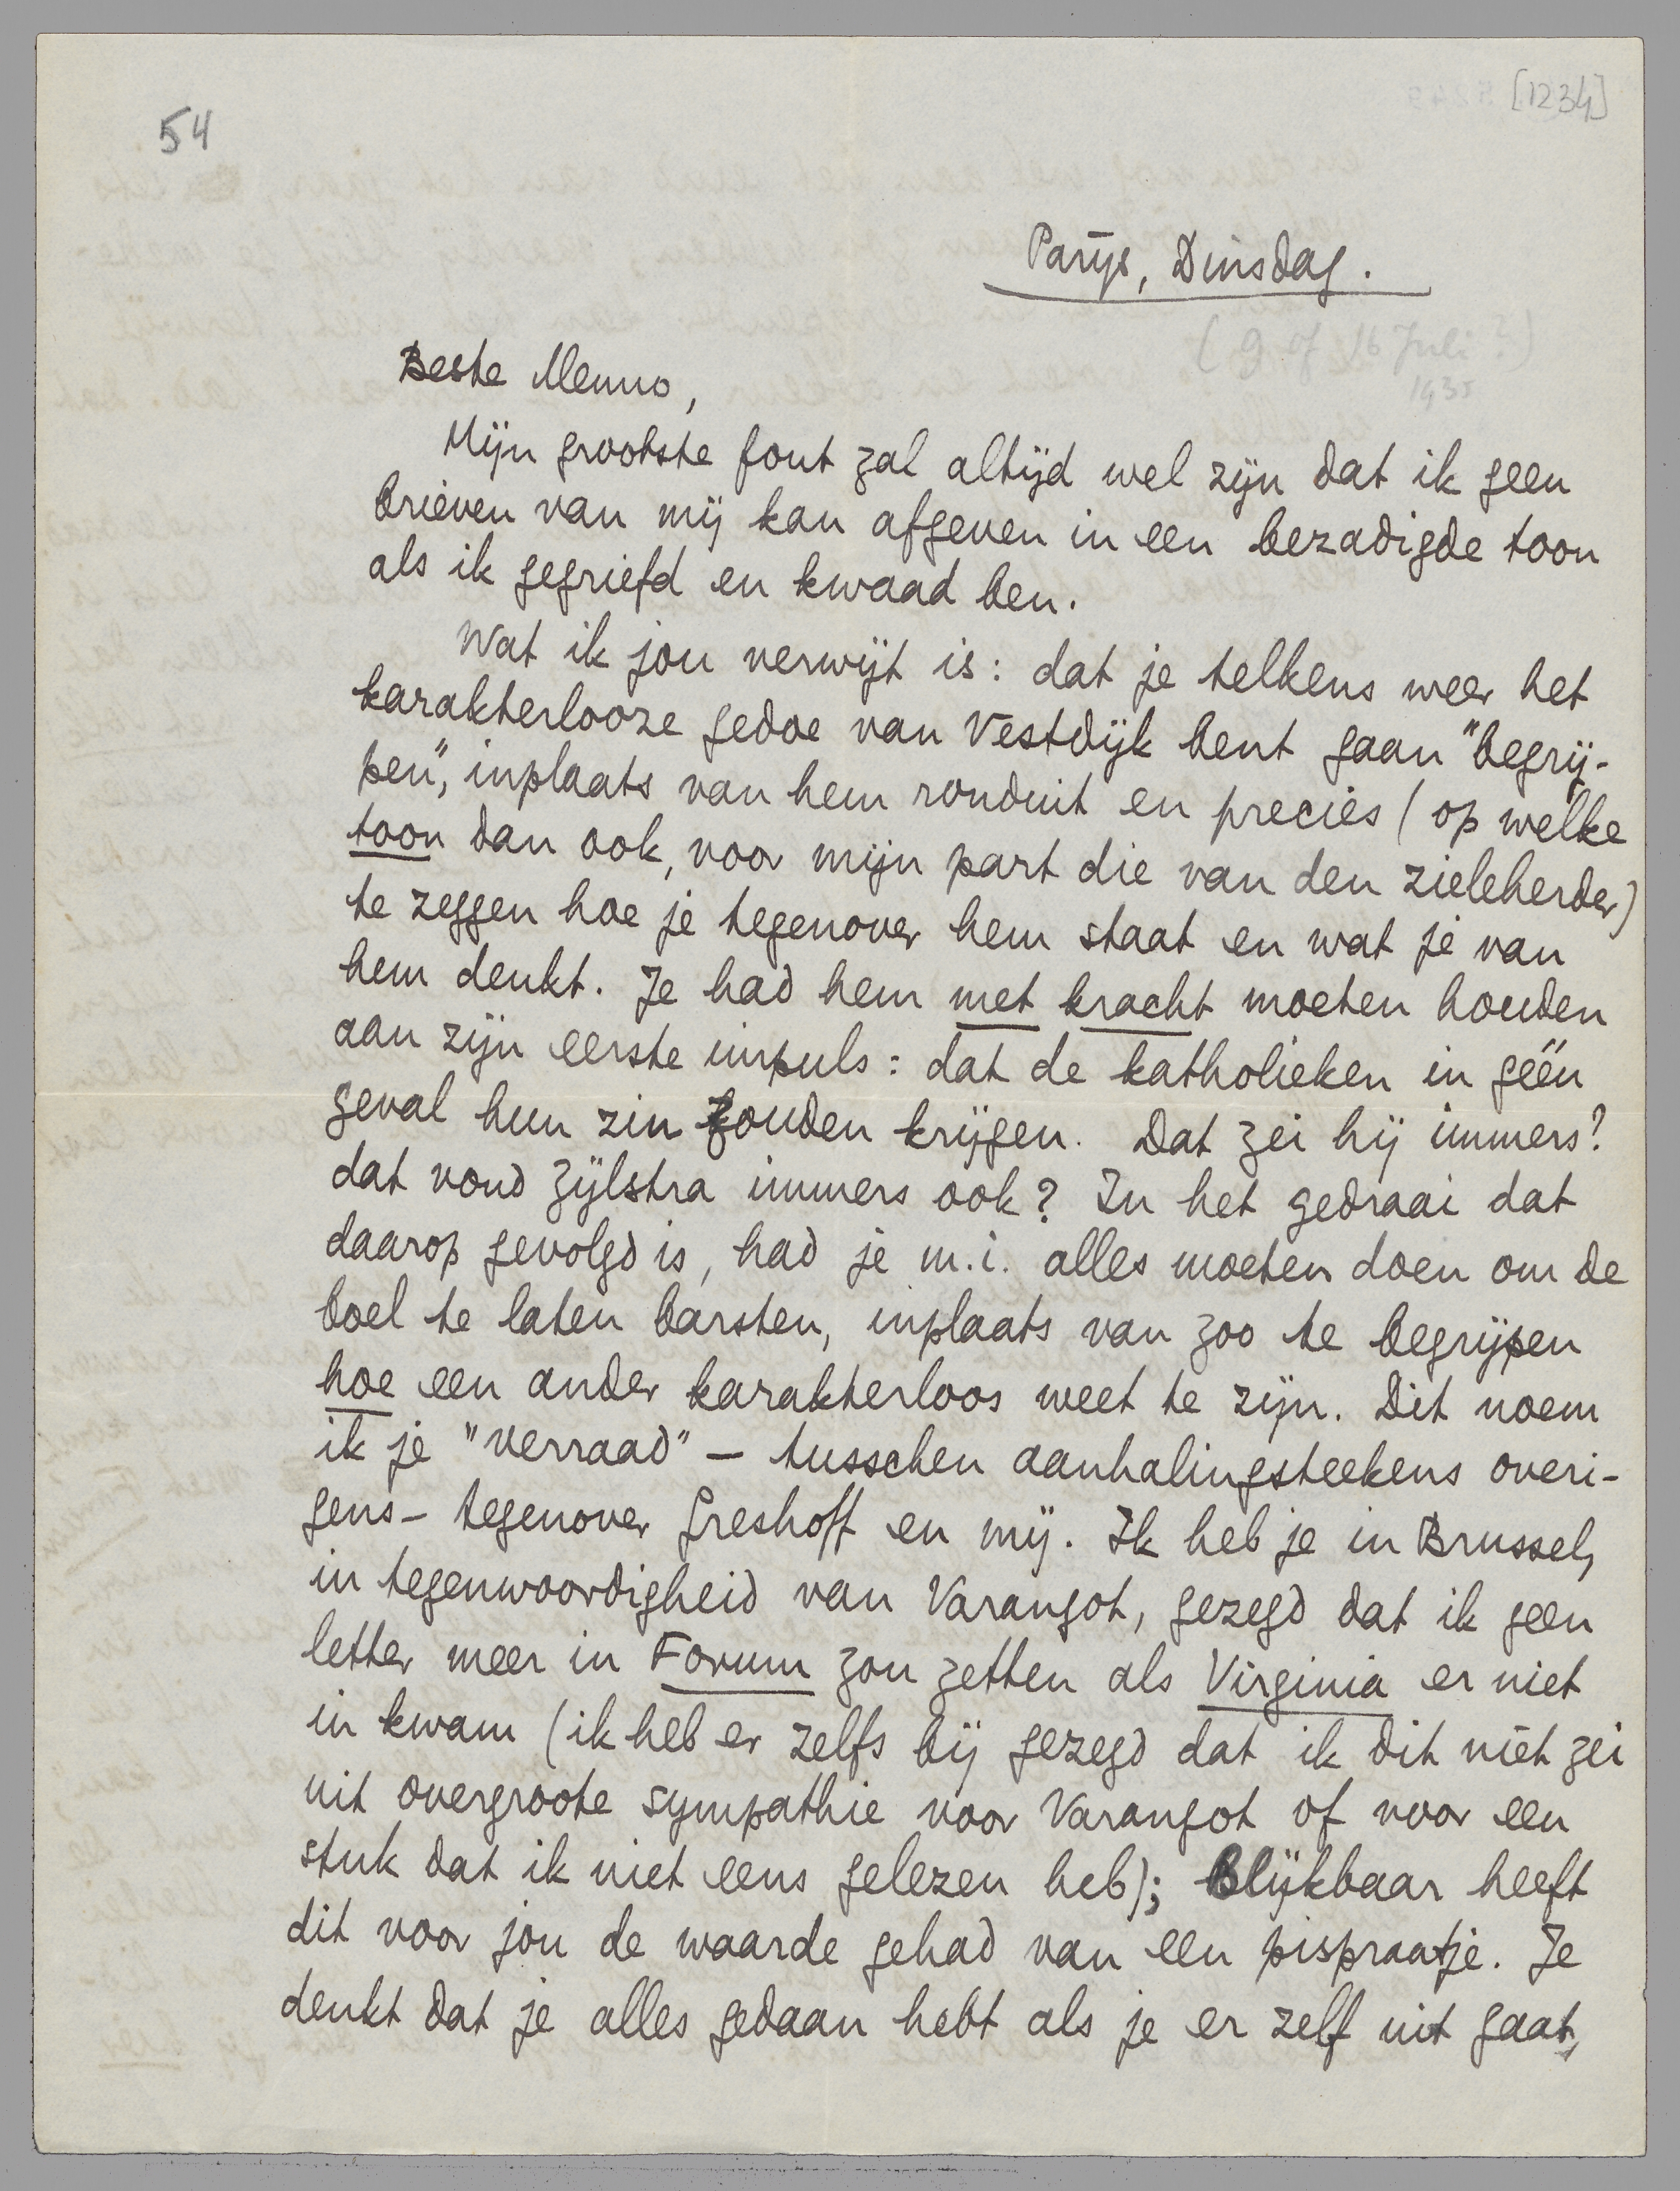 54
[1234]
Parijs, Dinsdag.
(9 of 16 Juli?)
1935
Beste Menno,
Mijn grootste fout zal altijd wel zijn dat ik geen
brieven van mij kan afgeven in een bezadigde toon
als ik gegriefd en kwaad ben.
Wat ik jou verwijt is: dat je telkens weer het
karakterlooze gedoe van Vestdijk bent gaan "begrij-
pen", inplaats van hem ronduit en precies (op welke
toon dan ook, voor mijn part die van den zieleherder)
te zeggen hoe je tegenover hem staat en wat je van
hem denkt. Je had hem met kracht moeten houden
aan zijn eerste impuls: dat de katholieken in géén
geval hun zin zouden krijgen. Dat zei hij immers?
dat vond Zijlstra immers ook? In het gedraai dat
daarop gevolgd is, had je m.i. alles moeten doen om de
boel te laten barsten, inplaats van zoo te begrijpen
hoe een ander karakterloos weet te zijn. Dit noem
ik je "verraad" – tusschen aanhalingsteekens overi-
gens – tegenover Greshoff en mij. Ik heb je in Brussel,
in tegenwoordigheid van Varangot, gezegd dat ik geen
letter meer in Forum zou zetten als Virginia er niet
in kwam (ik heb er zelfs bij gezegd dat ik dit niet zei
uit overgroote sympathie voor Varangot of voor een
stuk dat ik niet eens gelezen heb); Blijkbaar heeft
dit voor jou de waarde gehad van een pispraatje. Je
denkt dat je alles gedaan hebt als je er zelf uit gaat,